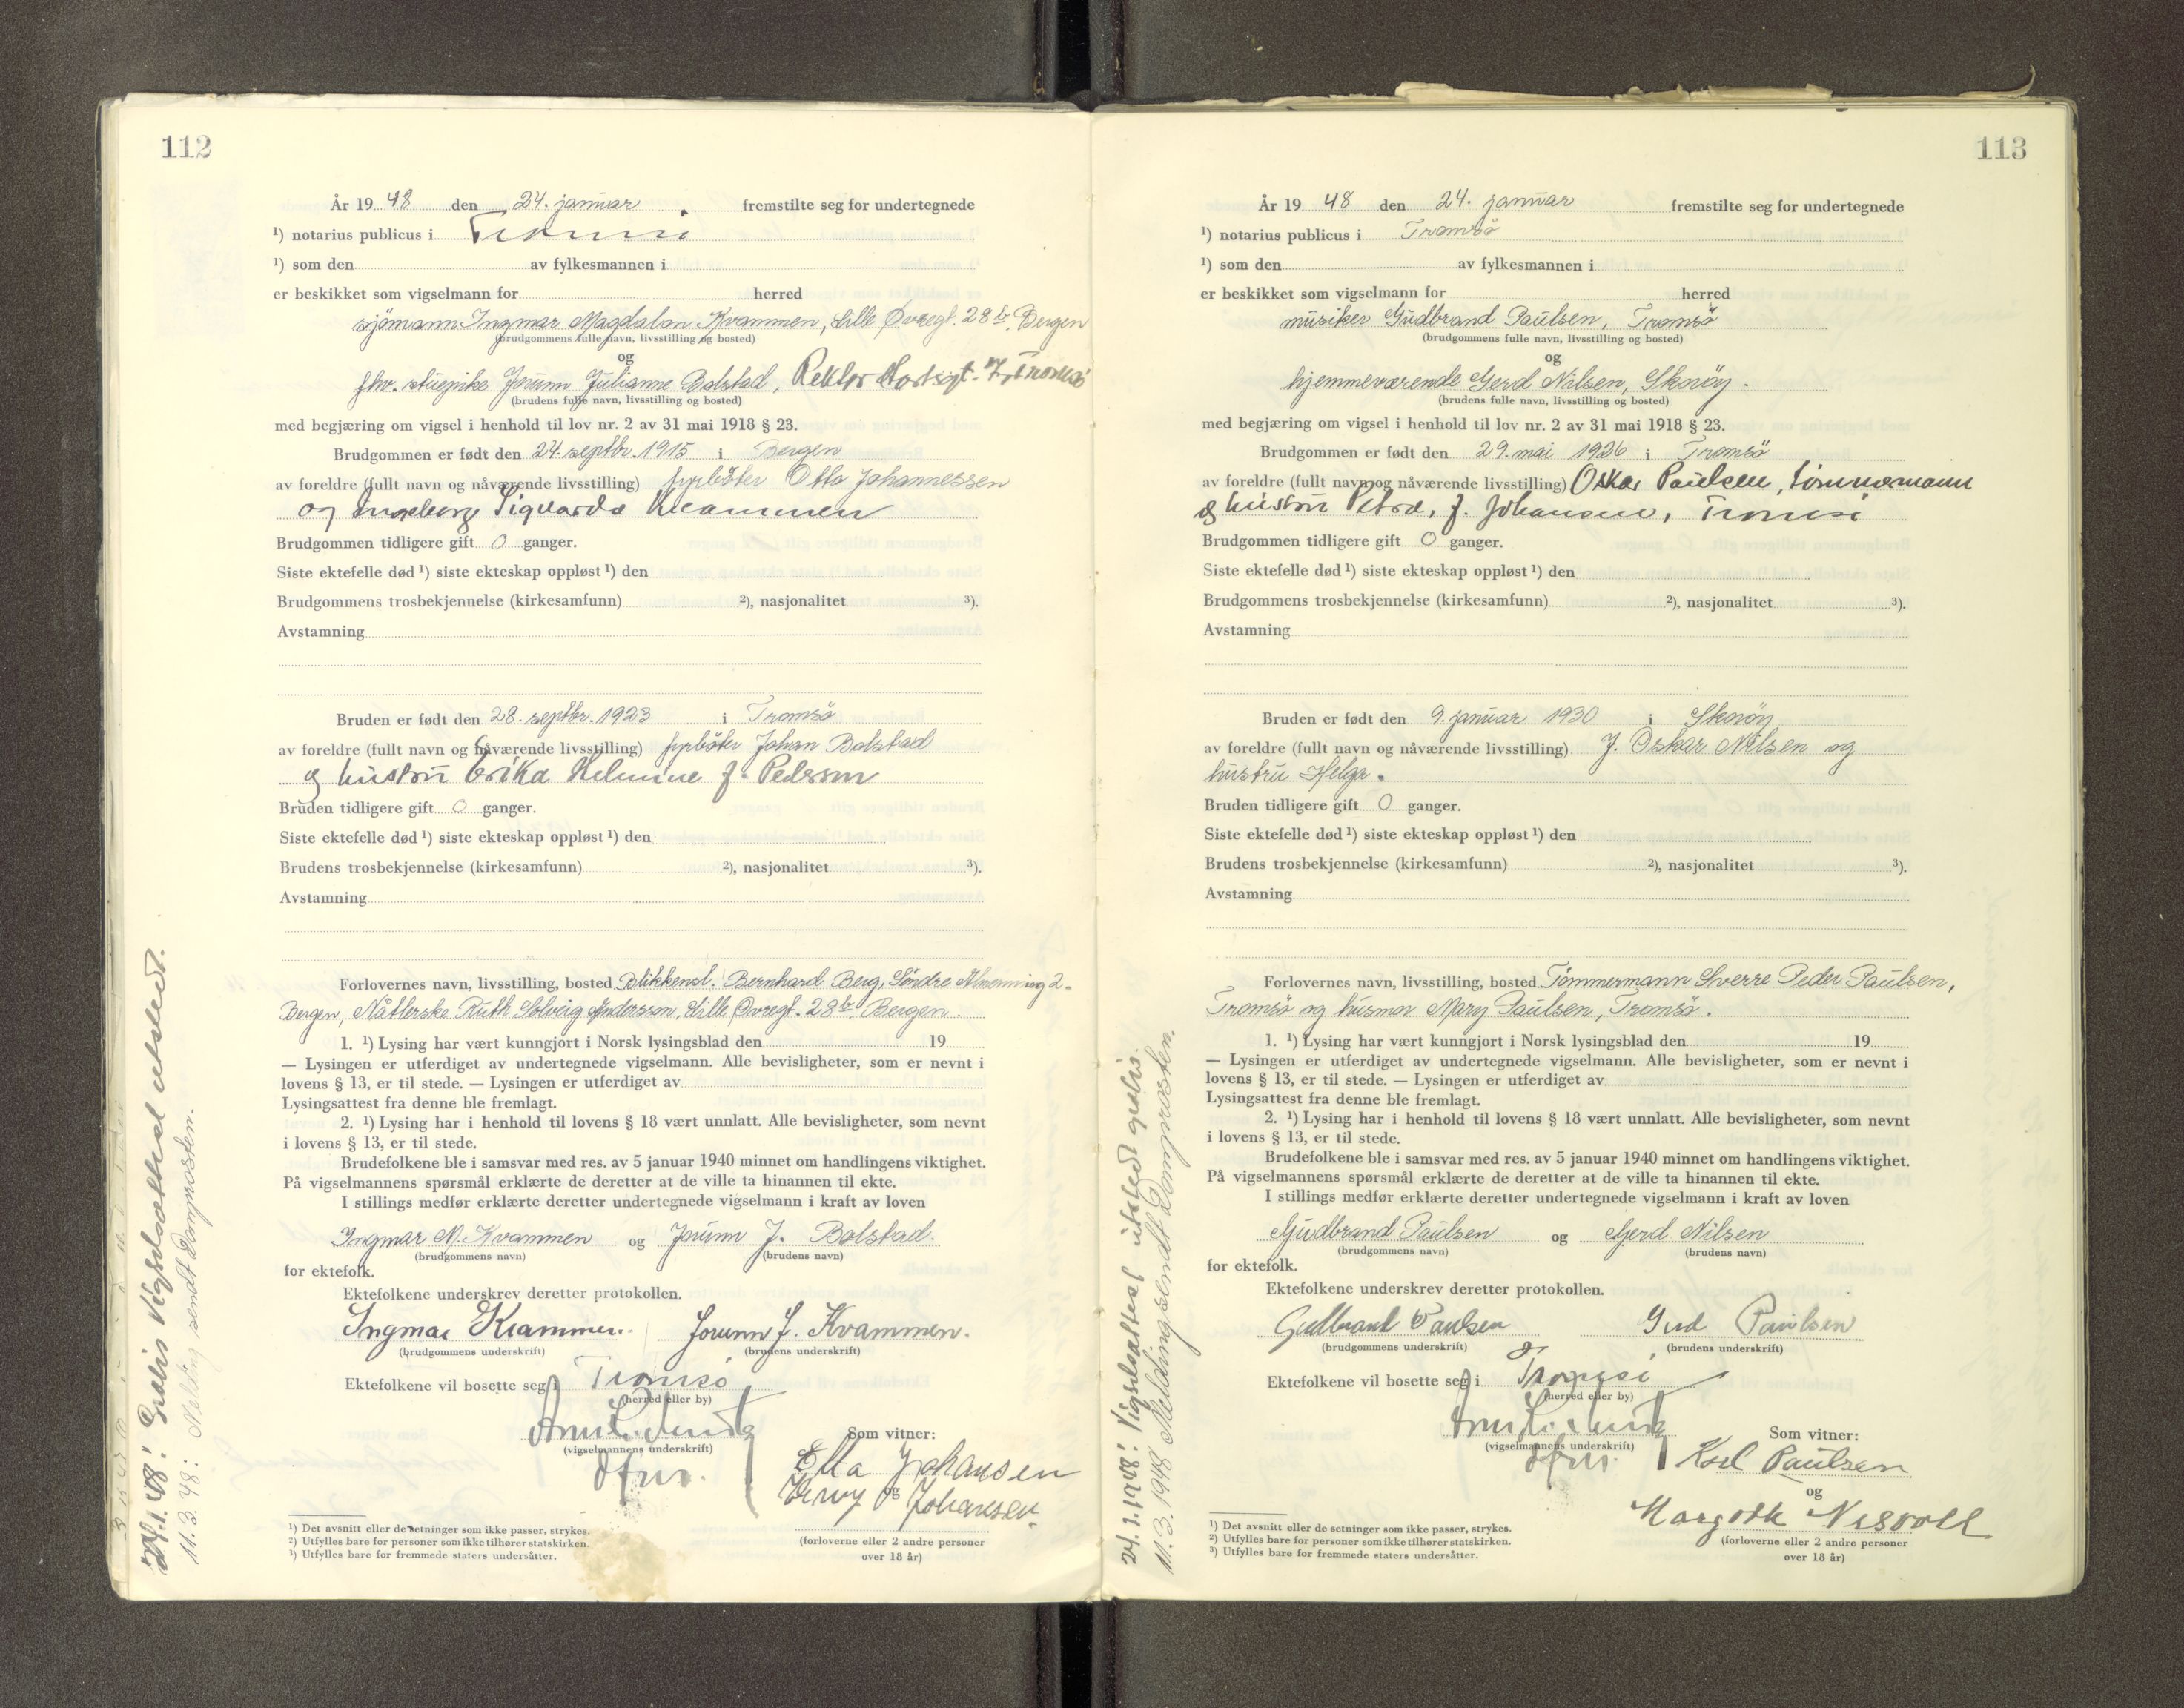 112
År 19 48 den 24. januar fremstilte seg for undertegnede
¹) notarius publicus i Tromsö
¹) som den av fylkesmannen i
er beskikket som vigselmann for herred
sjömann Ingmar Magdalon Kvammen, Lille Øvregt. 28 b, Bergen
(brudgommens fulle navn, livsstilling og bosted)
og
fhv. stuepike Jorunn Julianne Bolstad, Rektor Horstsgt. 7, Tromsö
(brudens fulle navn, livsstilling og bosted)
med begjæring om vigsel i henhold til lov nr. 2 av 31 mai 1918 § 23.
Brudgommen er født den 24. septbr. 1915 i Bergen
av foreldre (fullt navn og nåværende livsstilling) fyrböter Otto Johannessen
og Ingeborg Sigvarda Kvammen
Brudgommen tidligere gift 0 ganger.
Siste ektefelle død ¹) siste ekteskap oppløst ¹) den
Brudgommens trosbekjennelse (kirkesamfunn) ²), nasjonalitet ³).
Avstamning
Bruden er født den 28. septbr. 1923 i Tromsö
av foreldre (fullt navn og nåværende livsstilling) fyrböter Johan Bolstad
og hustru Erika Helmine f. Pedersen
Bruden tidligere gift 0 ganger.
Siste ektefelle død ¹) siste ekteskap oppløst ¹) den
Brudens trosbekjennelse (kirkesamfunn) ²), nasjonalitet ³).
Avstamning
Forlovernes navn, livsstilling, bosted Blikkensl. Bernhard Berg, Söndre Almenning 2.
Bergen, Nåtlerske Ruth Solveig Anderssen, Lille Øvregt. 28 b. Bergen.
1. ¹) Lysing har vært kunngjort i Norsk lysingsblad den 19
— Lysingen er utferdiget av undertegnede vigselmann. Alle bevisligheter, som er nevnt i
lovens § 13, er til stede. — Lysingen er utferdiget av
Lysingsattest fra denne ble fremlagt.
2. ¹) Lysing har i henhold til lovens § 18 vært unnlatt. Alle bevisligheter, som nevnt
i lovens § 13, er til stede.
Brudefolkene ble i samsvar med res. av 5 januar 1940 minnet om handlingens viktighet.
På vigselmannens spørsmål erklærte de deretter at de ville ta hinannen til ekte.
I stillings medfør erklærte deretter undertegnede vigselmann i kraft av loven
Ingmar M. Kvammen og Jorunn J. Bolstad.
(brudgommens navn) (brudens navn)
for ektefolk.
Ektefolkene underskrev deretter protokollen.
Ingmar Kvammen. Jorunn J. Kvammen.
(brudgommens underskrift) (brudens underskrift)
Ektefolkene vil bosette seg i Tromsö
(herred eller by)
(vigselmannens underskrift)
Som vitner:
Ella Johansen
og
Johansen.
(forloverne eller 2 andre personer
over 18 år)
¹) Det avsnitt eller de setninger som ikke passer, strykes.
²) Utfylles bare for personer som ikke tilhører statskirken.
³) Utfylles bare for fremmede staters undersåtter.
24.1.48: Gratis vigselsattest utstedt.
11.3.48: Melding sendt Domprosten.
113
År 19 48 den 24. januar fremstilte seg for undertegnede
¹) notarius publicus i Tromsö
¹) som den av fylkesmannen i
er beskikket som vigselmann for herred
musiker Gudbrand Paulsen, Tromsö
(brudgommens fulle navn, livsstilling og bosted)
og
hjemmeværende Gerd Nilsen, Skorøy.
(brudens fulle navn, livsstilling og bosted)
med begjæring om vigsel i henhold til lov nr. 2 av 31 mai 1918 § 23.
Brudgommen er født den 29. mai 1926 i Tromsö
av foreldre (fullt navn og nåværende livsstilling) Oskar Paulsen, tömmermann
og hustru Petra, f. Johansen, Tromsö
Brudgommen tidligere gift 0 ganger.
Siste ektefelle død ¹) siste ekteskap oppløst ¹) den
Brudgommens trosbekjennelse (kirkesamfunn) ²), nasjonalitet ³).
Avstamning
Bruden er født den 9. januar 1930 i Skorøy
av foreldre (fullt navn og nåværende livsstilling) J. Oskar Nilsen og
hustru Helga.
Bruden tidligere gift 0 ganger.
Siste ektefelle død ¹) siste ekteskap oppløst ¹) den
Brudens trosbekjennelse (kirkesamfunn) ²), nasjonalitet ³).
Avstamning
Forlovernes navn, livsstilling, bosted Tömmermann Sverre Peder Paulsen,
Tromsö og husmor Mary Paulsen, Tromsö.
1. ¹) Lysing har vært kunngjort i Norsk lysingsblad den 19
— Lysingen er utferdiget av undertegnede vigselmann. Alle bevisligheter, som er nevnt i
lovens § 13, er til stede. — Lysingen er utferdiget av
Lysingsattest fra denne ble fremlagt.
2. ¹) Lysing har i henhold til lovens § 18 vært unnlatt. Alle bevisligheter, som nevnt
i lovens § 13, er til stede.
Brudefolkene ble i samsvar med res. av 5 januar 1940 minnet om handlingens viktighet.
På vigselmannens spørsmål erklærte de deretter at de ville ta hinannen til ekte.
I stillings medfør erklærte deretter undertegnede vigselmann i kraft av loven
Gudbrand Paulsen og Gerd Nilsen
(brudgommens navn) (brudens navn)
for ektefolk.
Ektefolkene underskrev deretter protokollen.
Gudbrand Paulsen Gerd Paulsen
(brudgommens underskrift) (brudens underskrift)
Ektefolkene vil bosette seg i Tromsö
(herred eller by)
(vigselmannens underskrift)
Som vitner:
Karl Paulsen
og
Margoth Nesvoll
(forloverne eller 2 andre personer
over 18 år)
¹) Det avsnitt eller de setninger som ikke passer, strykes.
²) Utfylles bare for personer som ikke tilhører statskirken.
³) Utfylles bare for fremmede staters undersåtter.
24.1.1948: Vigselsattest utstedt gratis.
11.3.1948 Melding sendt Domprosten.